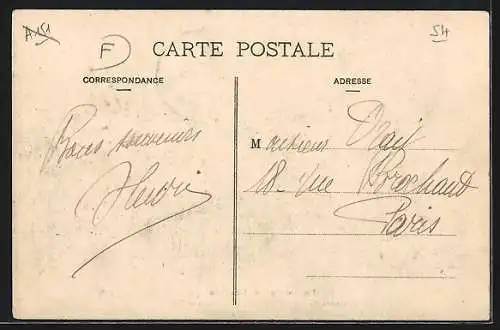 A151
F
54
CARTE POSTALE
CORRESPONDANCE
ADRESSE
Bons souvenirs
Henri
Monsieur
18 - rue Brochant
Paris